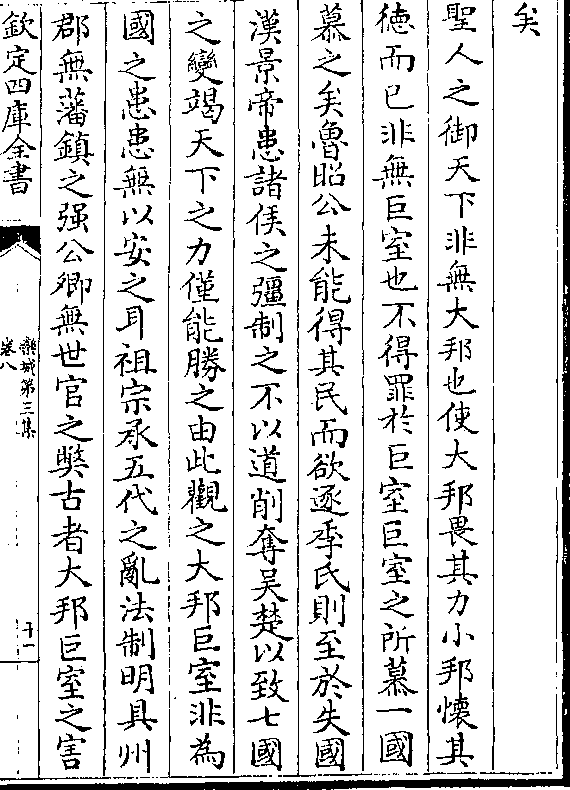 矣
聖人之御天下非無大邦也使大邦畏其力小邦懐其
徳而已非無巨室也不得罪於巨室巨室之所慕一國
慕之矣魯昭公未能得其民而欲逐季氏則至於失國
漢景帝患諸侯之彊制之不以道削奪吴楚以致七國
之變竭天下之力僅能勝之由此觀之大邦巨室非為
國之患患無以安之耳祖宗承五代之亂法制明具州
郡無藩鎮之强公卿無世官之弊古者大邦巨室之害
欽定四庫全書
欒城第三集
卷八
十一